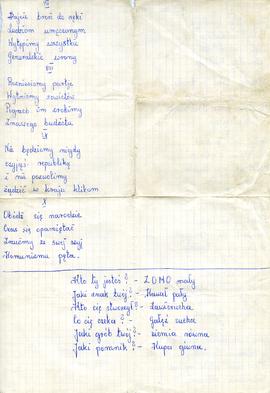 VII
Dajcie broń do ręki
Ludziom umęczonym
Wytępimy wszystkie
Generalskie wrony
VIII
Rozniesiemy partję
Wytniemy sowietów
Pogrzeb im zrobimy
Znaszego budżetu
IX
Nie będziemy nigdy
czyjąś republiką
i nie pozwolimy
rządzić w kraju klikom
X
Obudź się narodzie
Czas się opamiętać
Zrzućmy ze swej szyj
Komunizmu pęta.
Kto ty jesteś? - ZOMO mały
Jaki znak twój? - Kawał pały
Kto cię stworzył? - Zawierucha
Co cię czeka? - Gałęź sucha
Jaki grób twój? - ziemia równa
Jaki pomnik? - Kupa gówna.